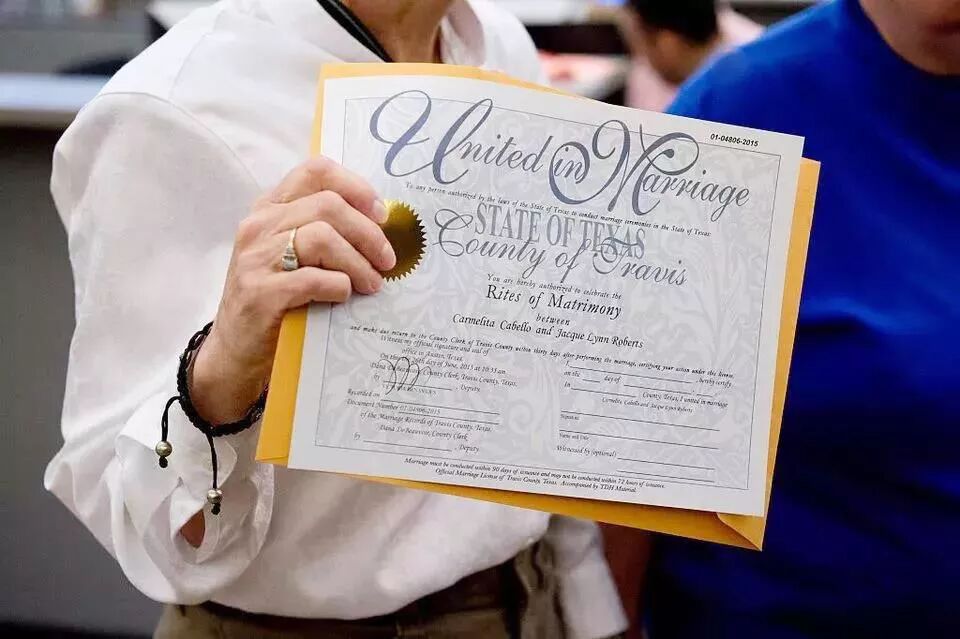 01-04806-2015
United in Marriage
To any person authorized by the laws of the State of Texas to conduct marriage ceremonies in the State of Texas:
STATE OF TEXAS
County of Travis
You are hereby authorized to celebrate the
Rites of Matrimony
between
Carmelita Cabello and Jacque Lynn Roberts
and make due return to the County Clerk of Travis County within thirty days after performing the marriage, certifying your action under this license.
Witness my official signature and seal of
office in Austin, Texas.
On this the 26th day of June, 2015 at 10:33 am
Dana DeBeauvoir, County Clerk, Travis County, Texas.
by , Deputy.
Recorded on
Document Number 01-04806-2015
of the Marriage Records of Travis County, Texas.
Dana DeBeauvoir, County Clerk
by , Deputy.
on the day of , hereby certify
In County, Texas, I united in marriage
Carmelita Cabello and Jacque Lynn Roberts
Signature
Name and Title
Witnessed by (optional)
Marriage must be conducted within 90 days of issuance and may not be conducted within 72 hours of issuance.
Official Marriage License of Travis County, Texas. Accompanied by TDH Material.